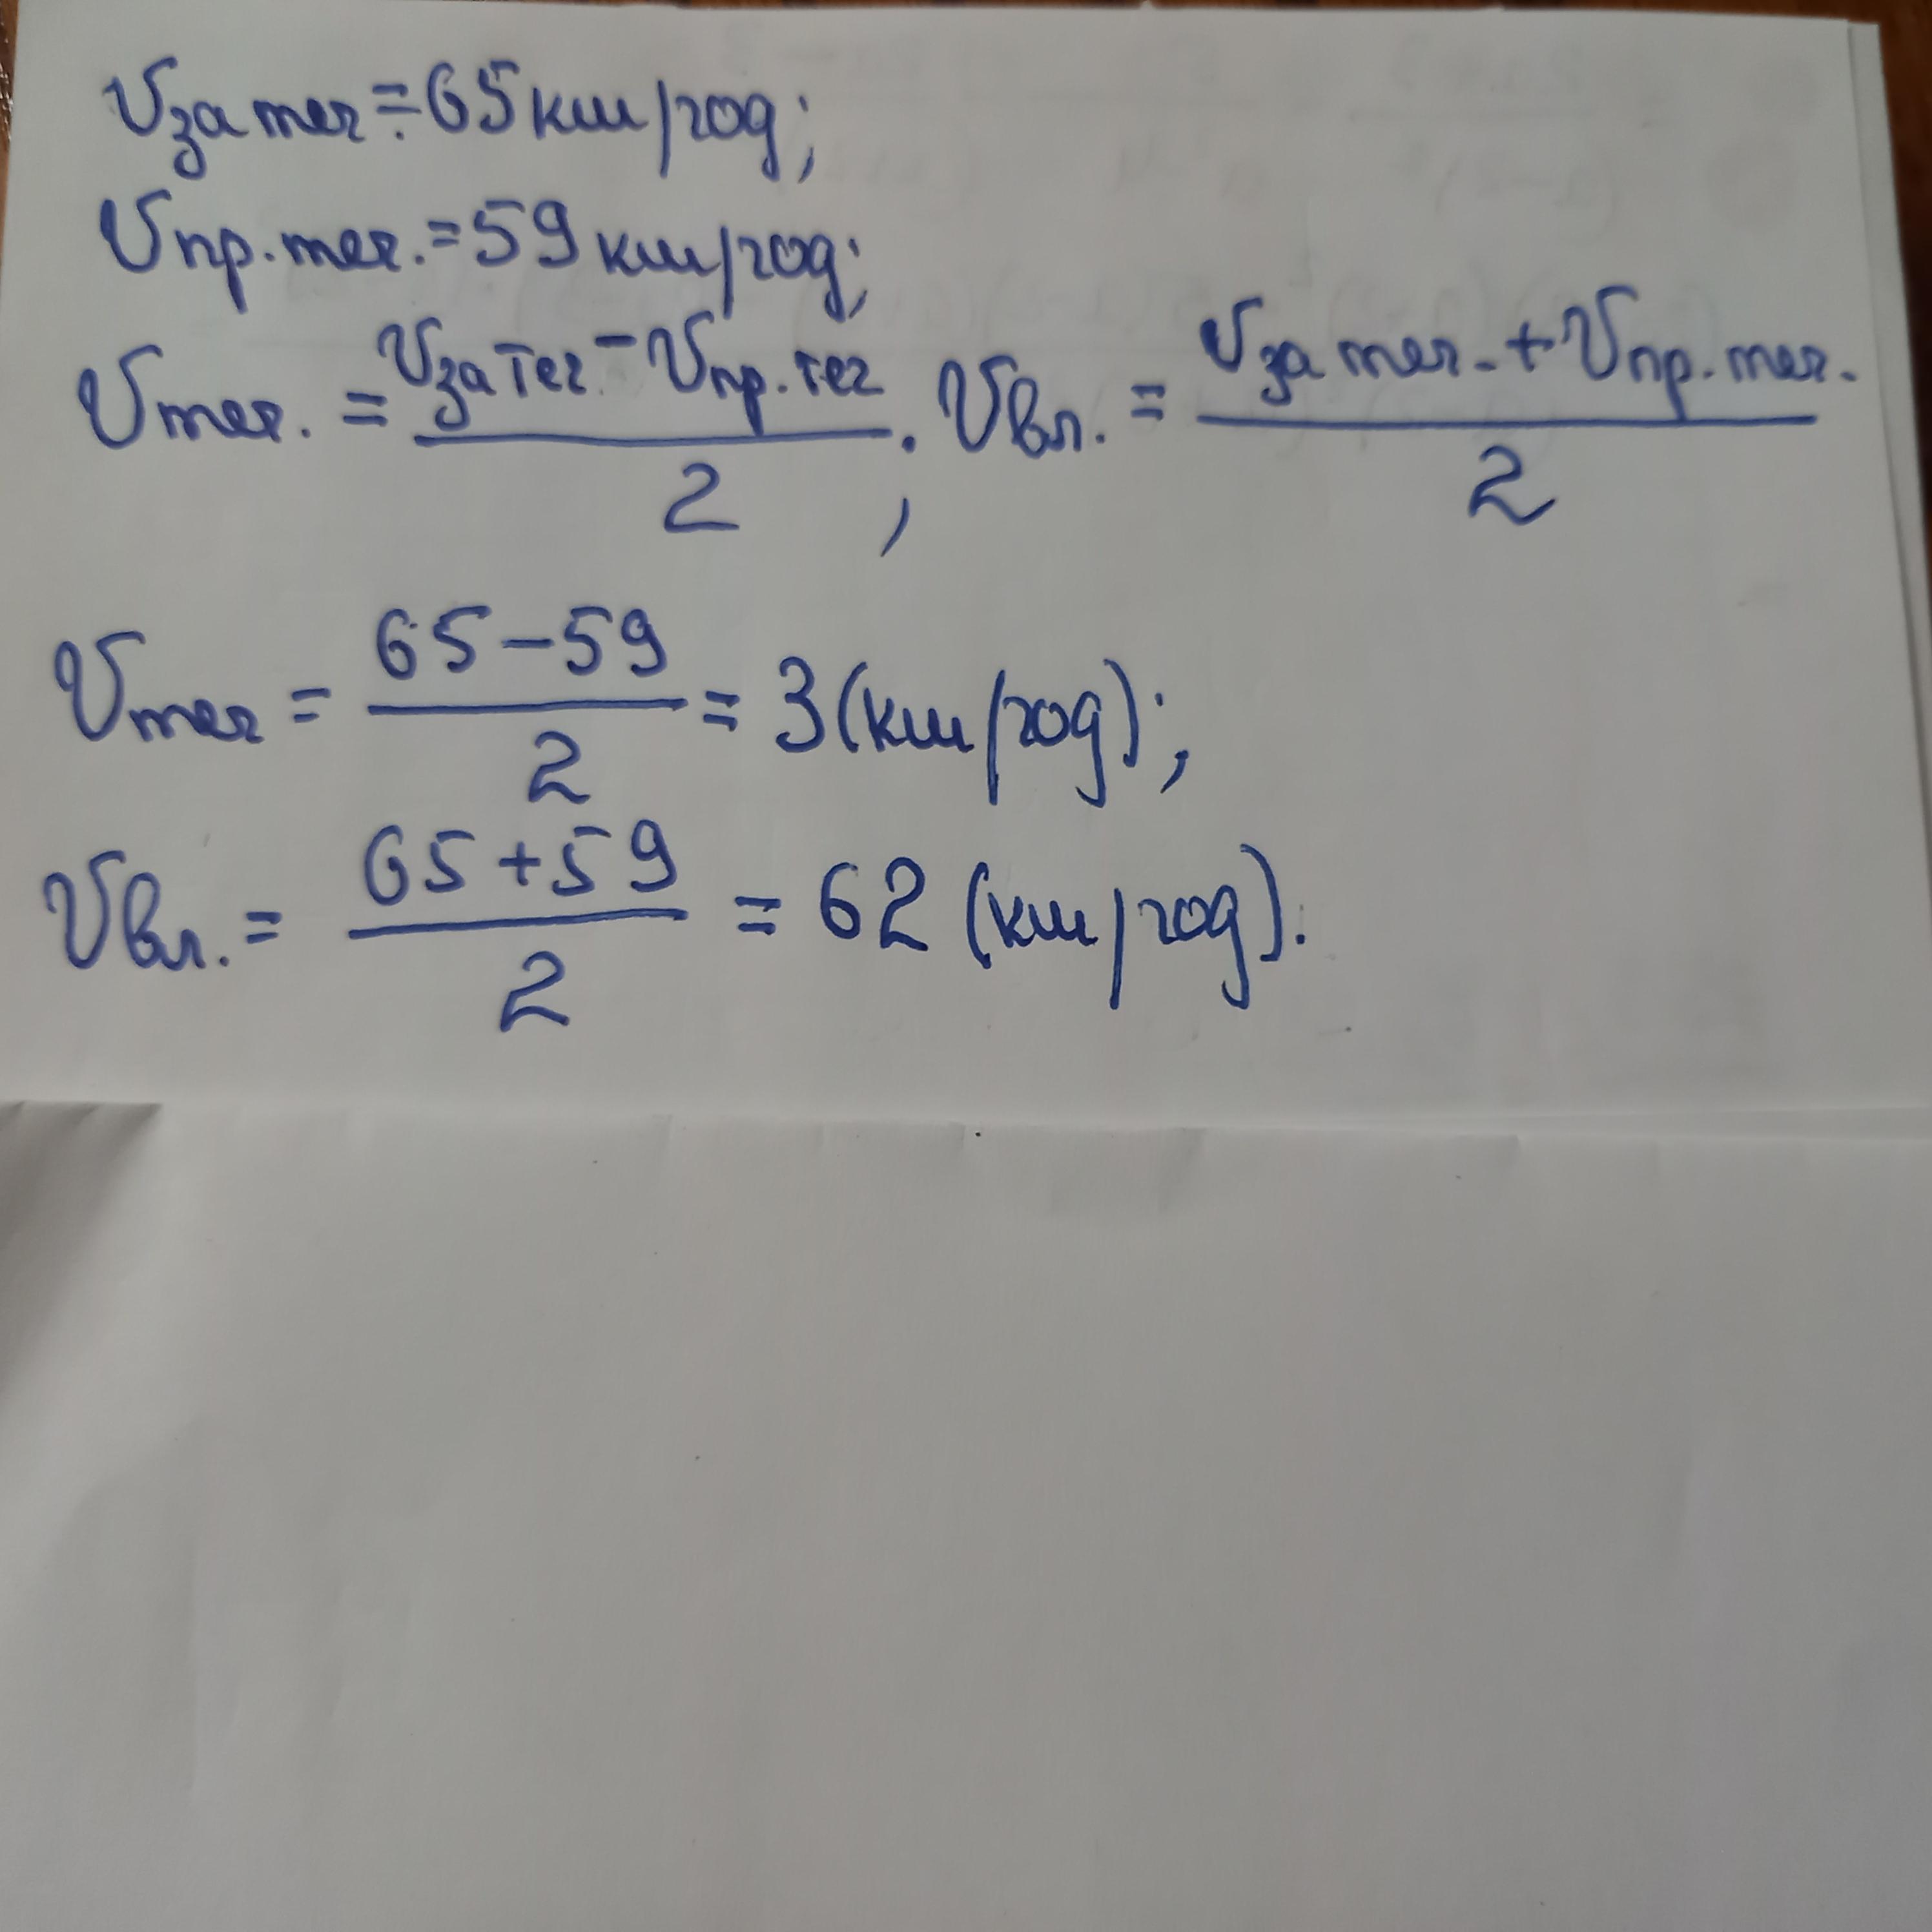 Vза теч = 65 км/год;
Vпр. теч. = 59 км/год;
Vтеч. = (Vза теч - Vпр. теч) / 2 ; Vвл. = (Vза теч. + Vпр. теч.) / 2
Vтеч = (65 - 59) / 2 = 3 (км/год);
Vвл. = (65 + 59) / 2 = 62 (км/год).